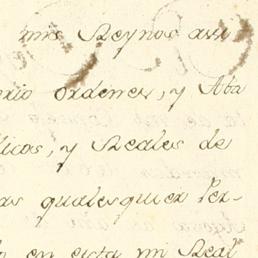 mis Reynos asi
erio ordenes, y Aba
licos, y Reales de
as qualesquier Per-
en esta mi Real